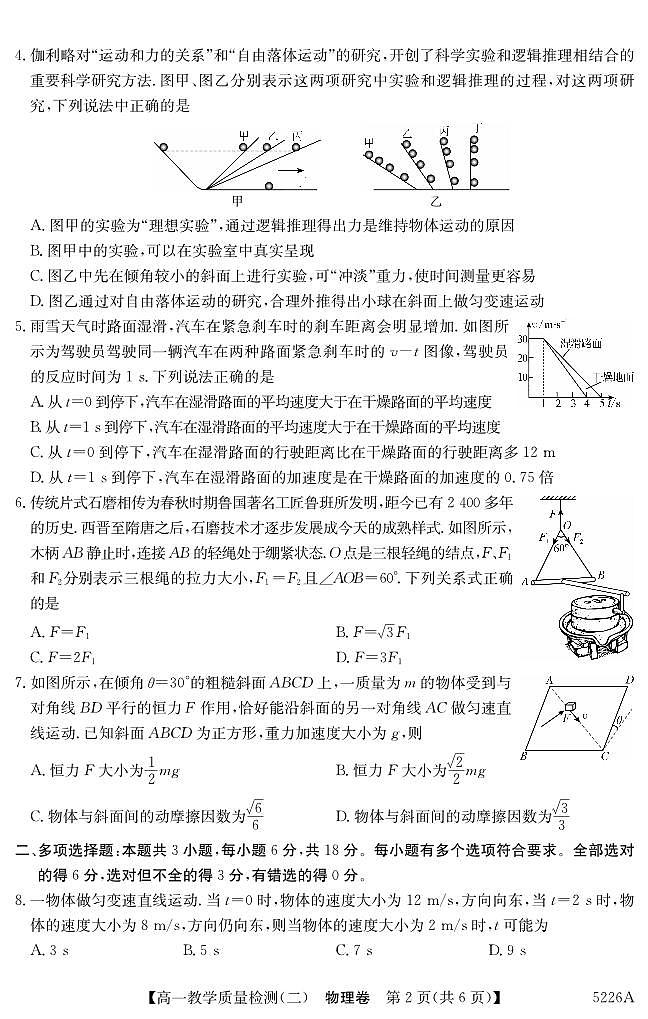 4. 伽利略对“运动和力的关系”和“自由落体运动”的研究,开创了科学实验和逻辑推理相结合的
重要科学研究方法. 图甲、图乙分别表示这两项研究中实验和逻辑推理的过程,对这两项研
究,下列说法中正确的是
甲 乙 丙
甲
甲 乙 丙 丁
乙
A. 图甲的实验为“理想实验”,通过逻辑推理得出力是维持物体运动的原因
B. 图甲中的实验,可以在实验室中真实呈现
C. 图乙中先在倾角较小的斜面上进行实验,可“冲淡”重力,使时间测量更容易
D. 图乙通过对自由落体运动的研究,合理外推得出小球在斜面上做匀变速运动
5. 雨雪天气时路面湿滑,汽车在紧急刹车时的刹车距离会明显增加. 如图所
示为驾驶员驾驶同一辆汽车在两种路面紧急刹车时的 v-t 图像,驾驶员
的反应时间为 1 s. 下列说法正确的是
v/m·s⁻¹
30
20
10
湿滑路面
干燥地面
1 2 3 4 5 t/s
A. 从 t=0 到停下,汽车在湿滑路面的平均速度大于在干燥路面的平均速度
B. 从 t=1 s 到停下,汽车在湿滑路面的平均速度大于在干燥路面的平均速度
C. 从 t=0 到停下,汽车在湿滑路面的行驶距离比在干燥路面的行驶距离多 12 m
D. 从 t=1 s 到停下,汽车在湿滑路面的加速度是在干燥路面的加速度的 0.75 倍
6. 传统片式石磨相传为春秋时期鲁国著名工匠鲁班所发明,距今已有 2 400 多年
的历史. 西晋至隋唐之后,石磨技术才逐步发展成今天的成熟样式. 如图所示,
木柄 AB 静止时,连接 AB 的轻绳处于绷紧状态. O 点是三根轻绳的结点,F、F₁
和 F₂ 分别表示三根绳的拉力大小,F₁=F₂ 且∠AOB=60°. 下列关系式正确
的是
F
O
F₁ F₂
60°
A B
A. F=F₁ B. F=√3F₁
C. F=2F₁ D. F=3F₁
7. 如图所示,在倾角 θ=30°的粗糙斜面 ABCD 上,一质量为 m 的物体受到与
对角线 BD 平行的恒力 F 作用,恰好能沿斜面的另一对角线 AC 做匀速直
线运动. 已知斜面 ABCD 为正方形,重力加速度大小为 g,则
A D
F v
θ
B C
A. 恒力 F 大小为 1/2 mg B. 恒力 F 大小为 √2/2 mg
C. 物体与斜面间的动摩擦因数为 √6/6 D. 物体与斜面间的动摩擦因数为 √3/3
二、多项选择题:本题共 3 小题,每小题 6 分,共 18 分。每小题有多个选项符合要求。全部选对
的得 6 分,选对但不全的得 3 分,有错选的得 0 分。
8. 一物体做匀变速直线运动. 当 t=0 时,物体的速度大小为 12 m/s,方向向东,当 t=2 s 时,物
体的速度大小为 8 m/s,方向仍向东,则当物体的速度大小为 2 m/s 时,t 可能为
A. 3 s B. 5 s C. 7 s D. 9 s
【高一教学质量检测(二) 物理卷 第 2 页(共 6 页)】 5226A